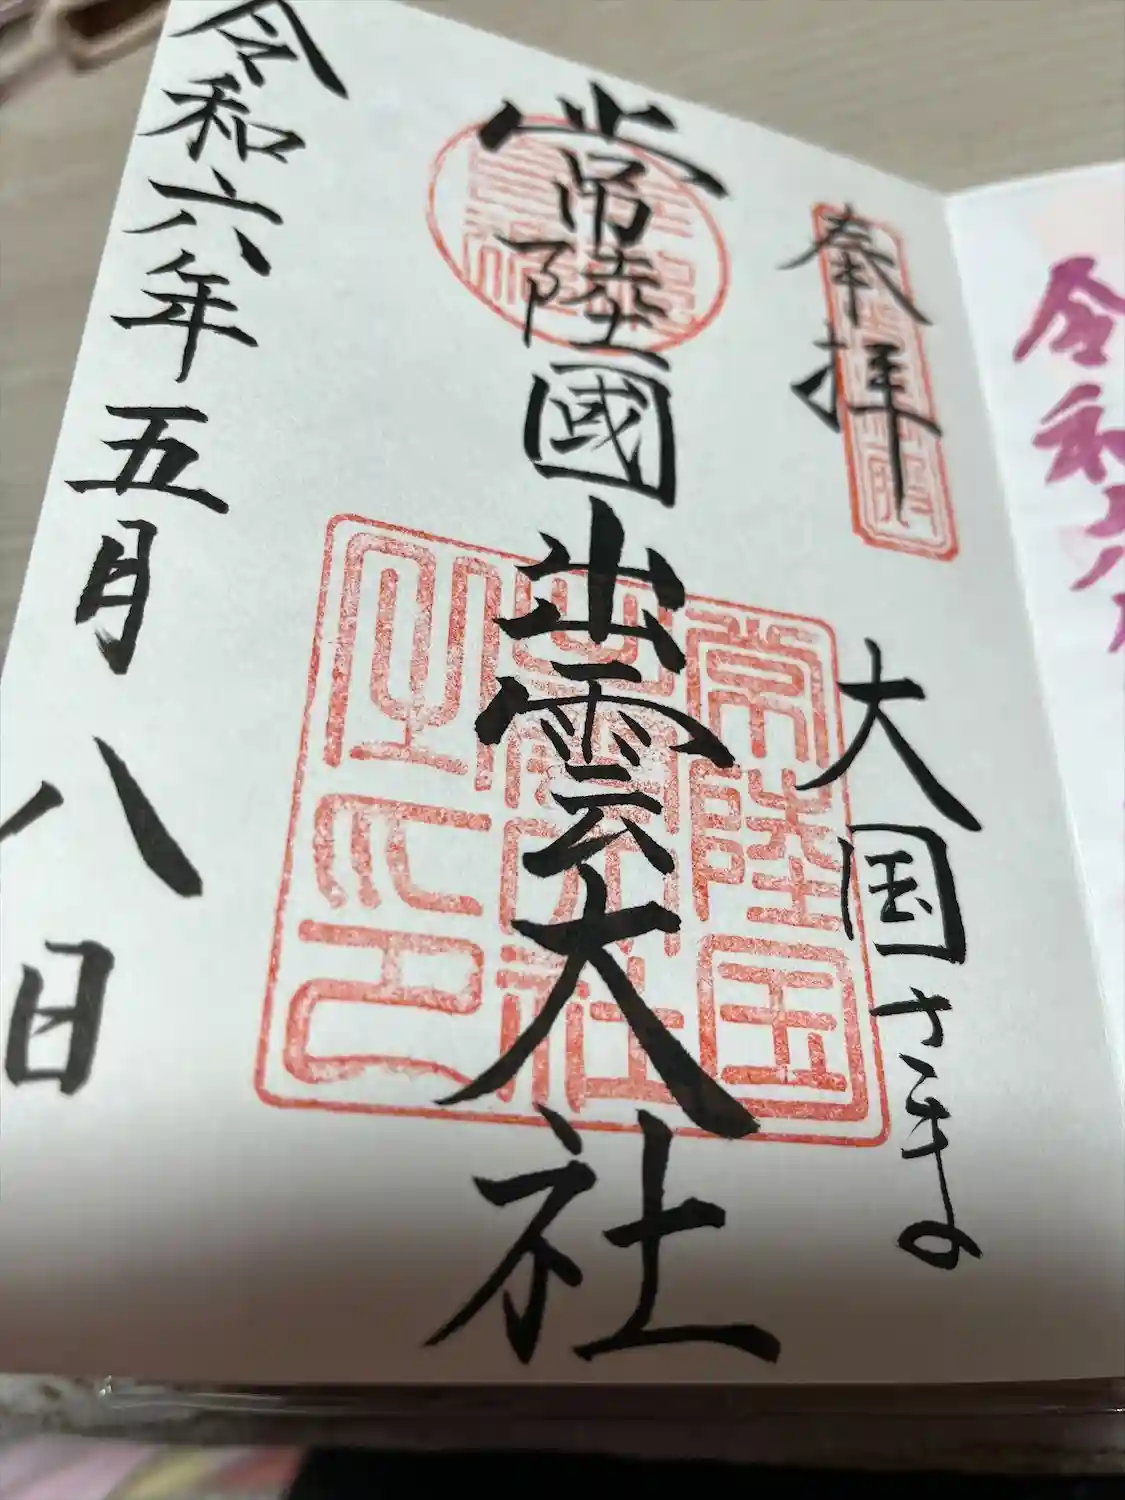 奉拝
大国さま
常陸國出雲大社
常陸国出雲大社之印
令和六年五月八日
令和六